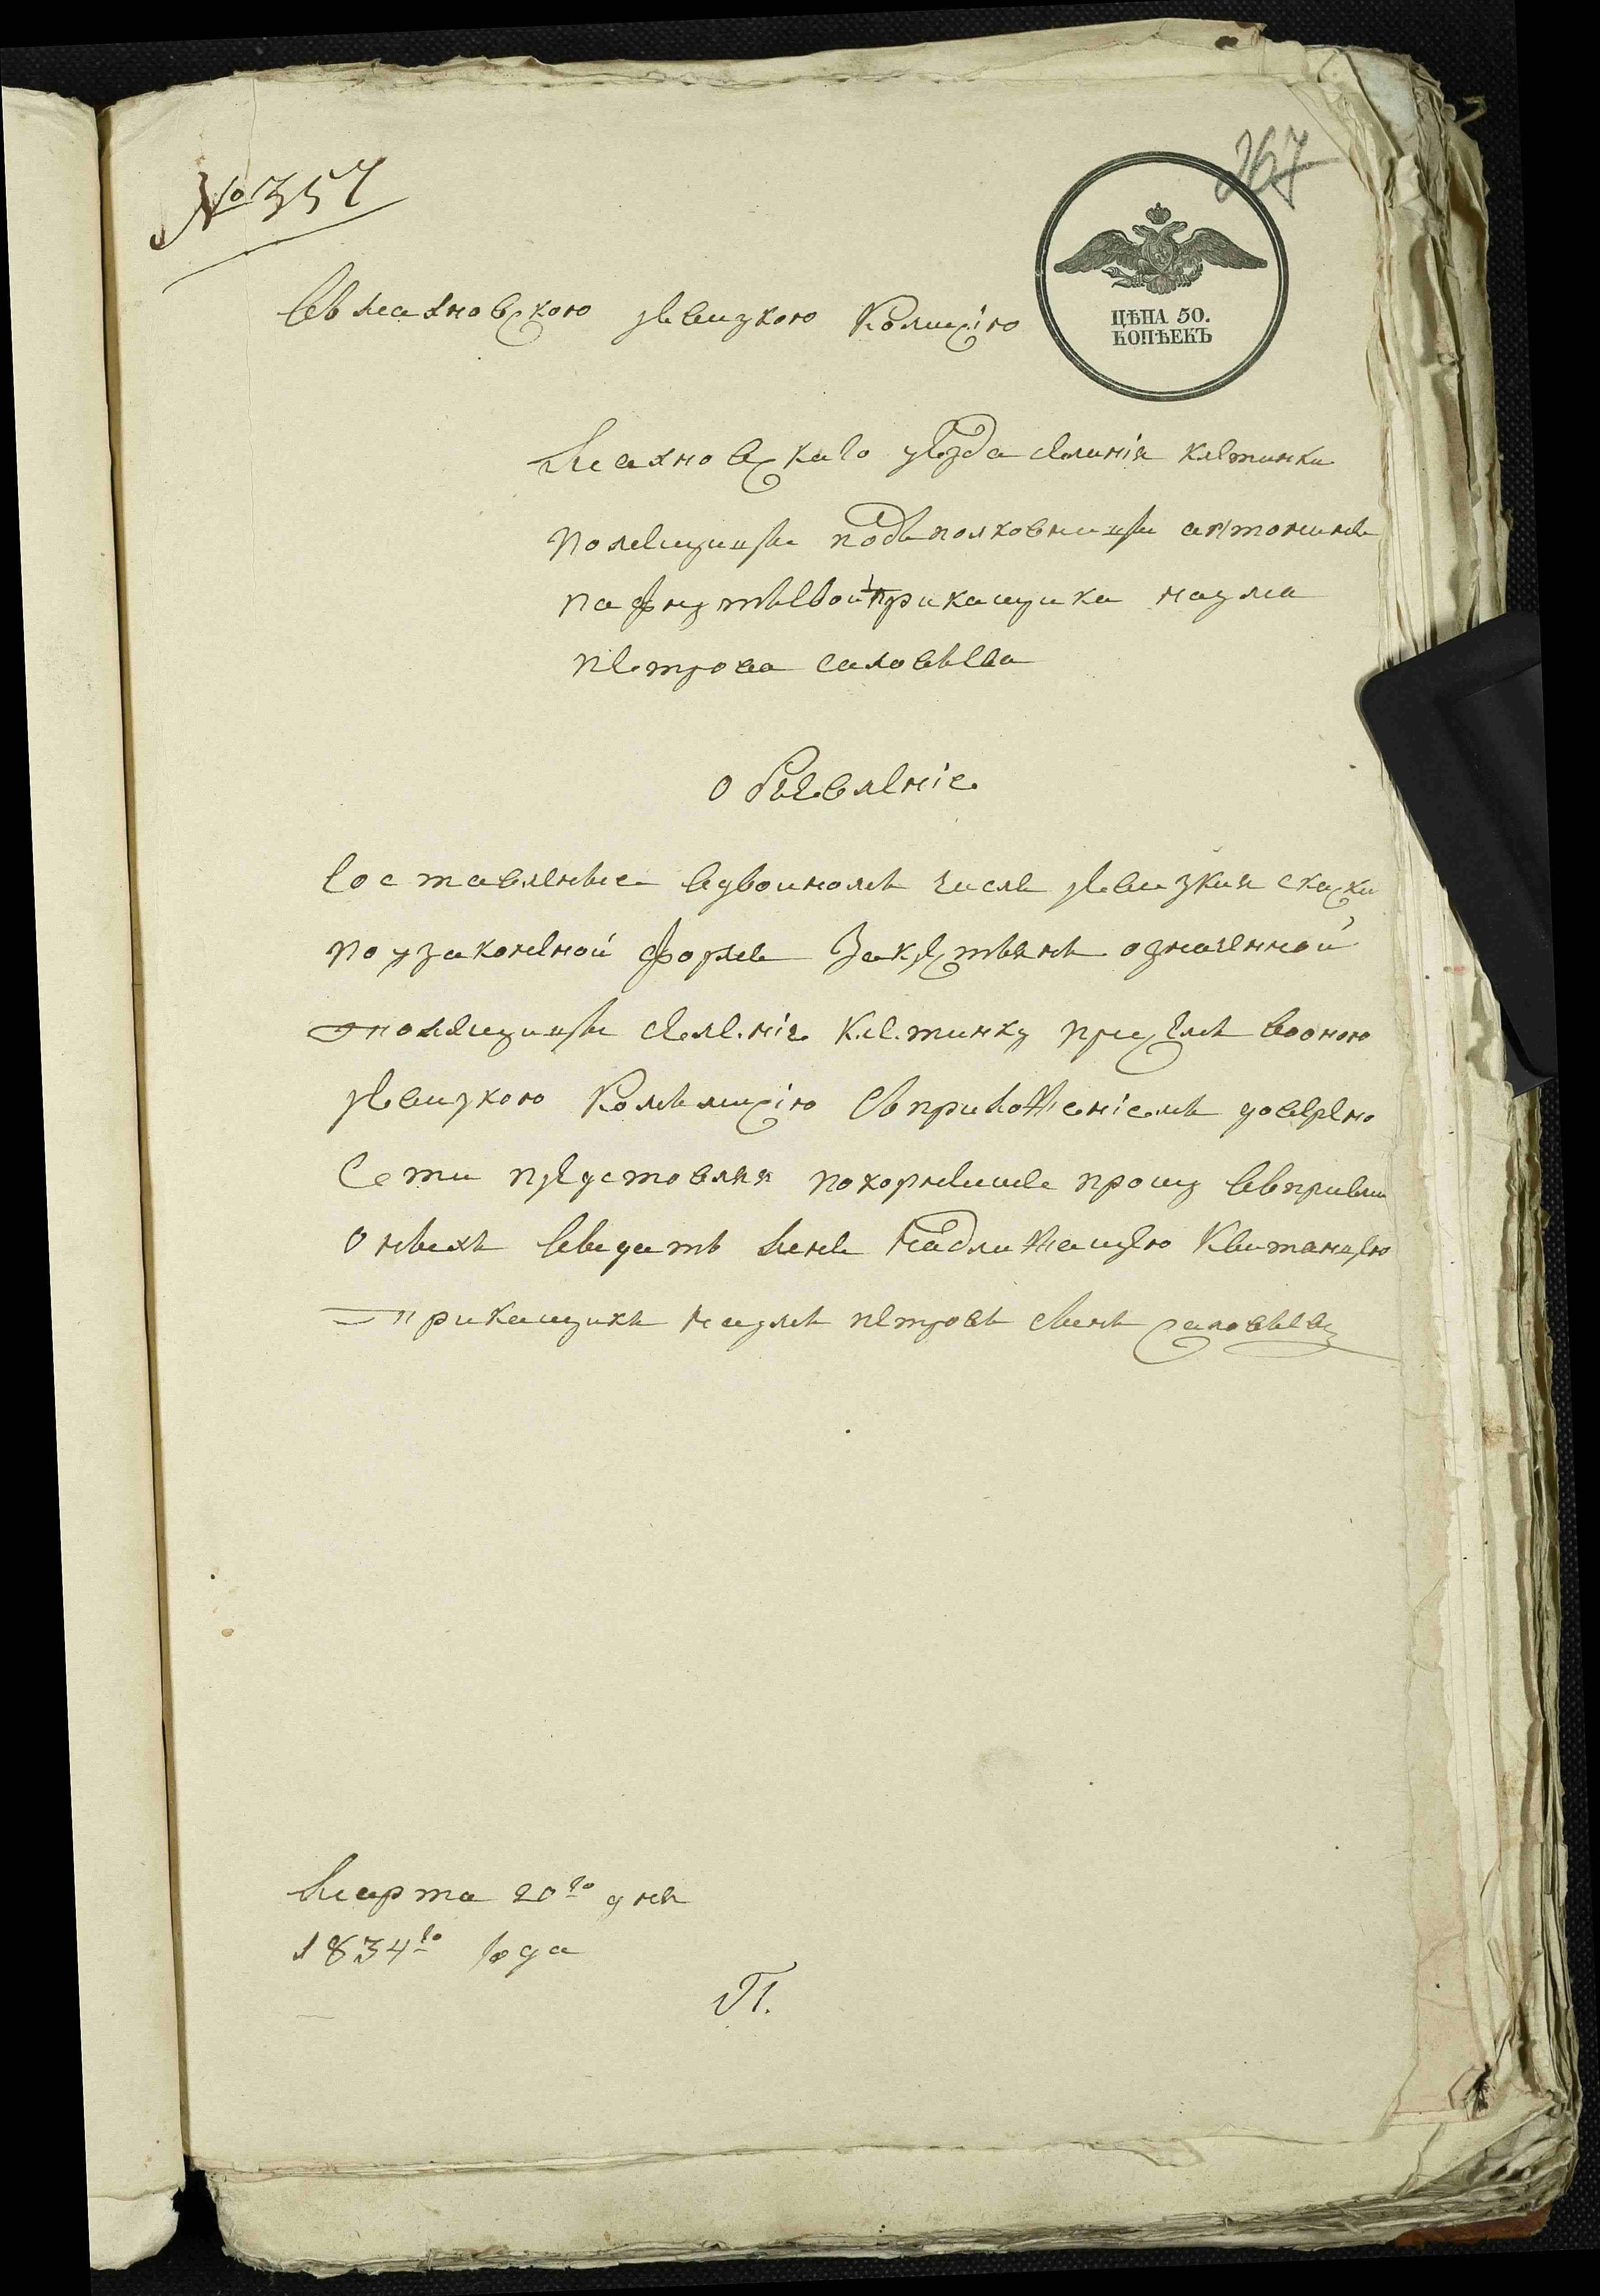 № 357
267
ЦѢНА 50.
КОПѢЕКЪ
въ махновскою ревизкою комисію
Махновскаго уезда селинія клетинки
помещицы подъполковницы антонине
пафнутьевой прикащика наума
петрова саловьева
обьевленіе
составленые вдвоиномъ числе ревизкия скаски
поузаконеной форме закрестьянъ означенной
помещицы селеніе клетинку присемъ вооною
ревизкою комъмисію съприложеніемъ доверено
сти предстовляя покорнеише прошу въприеми
оныхъ выдать мне надлижащую квитанцею
прикащикъ наумъ петровъ сынъ саловьевъ
Марта 20го дня
1834го года
П.